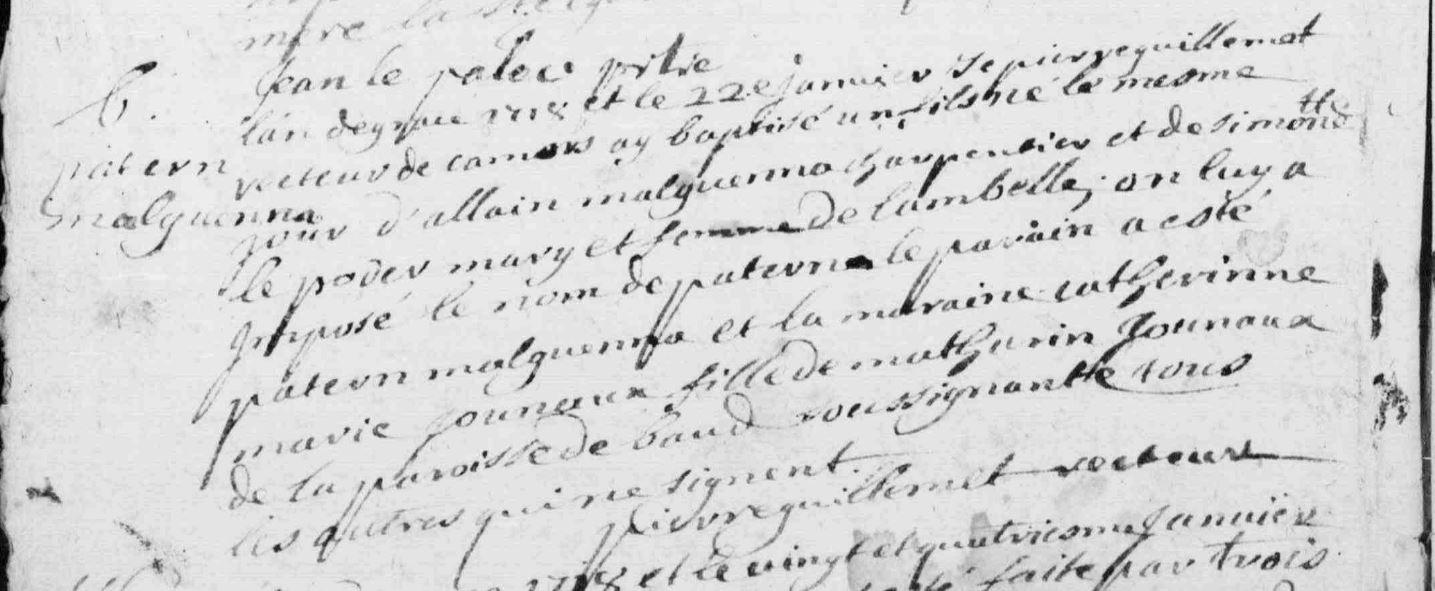 mere la
Jean le paloc ptre
B.
patern
malguenna
lan de grace 1718 et le 22e janvier je pierre guillemot
recteur de camors ay baptisé un fils né le mesme
jour d'allain malguenna charpentier et de simontte
le poder mary et femme de lambelle, on luy a
Imposé le nom de paterne le parain a esté
patern malguenna et la maraine catherinne
marie Jouneaux fille de mathurin Jounaux
de la paroisse de baud soussignantte tous
les autres qui ne signent.
pierre guillemot recteur
1718 et le vingt et quatriesme Janvier
faite par trois